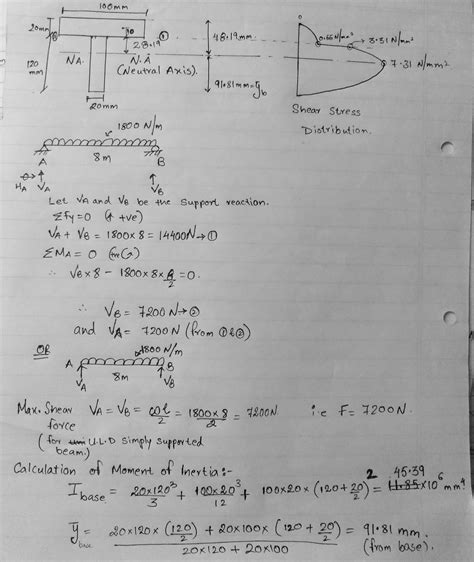 100mm
20mm
10
①
28.19
48.19mm
0.66N/mm²
3.31N/mm²
120
mm
NA.
N.A
(Neutral Axis).
91.81mm=ȳb
7.31 N/mm²
20mm
Shear Stress
Distribution.
1800 N/m
A
8m
B
HA
VA
VB
Let VA and VB be the support reaction.
Σfy=0 (↑ +ve)
VA + VB = 1800×8 = 14400N→①
ΣMA = 0
∴ VB×8 - 1800×8×8/2=0.
∴ VB = 7200N→②
and VA= 7200N (from ①&②)
OR
1800N/m
A
B
VA
8m
VB
Max. Shear VA = VB = ωl/2 = 1800×8/2 = 7200N i.e F= 7200N.
force
(for U.L.D simply supported
beam.)
Calculation of Moment of Inertia:-
I base = 20×120³/3 + 100×20³/12 + 100×20×(120+20/2)² = 45.39 ×10⁶ mm⁴
ȳ base = 20×120×(120/2) + 20×100×(120+20/2) / 20×120 + 20×100 = 91.81 mm.
(from base).